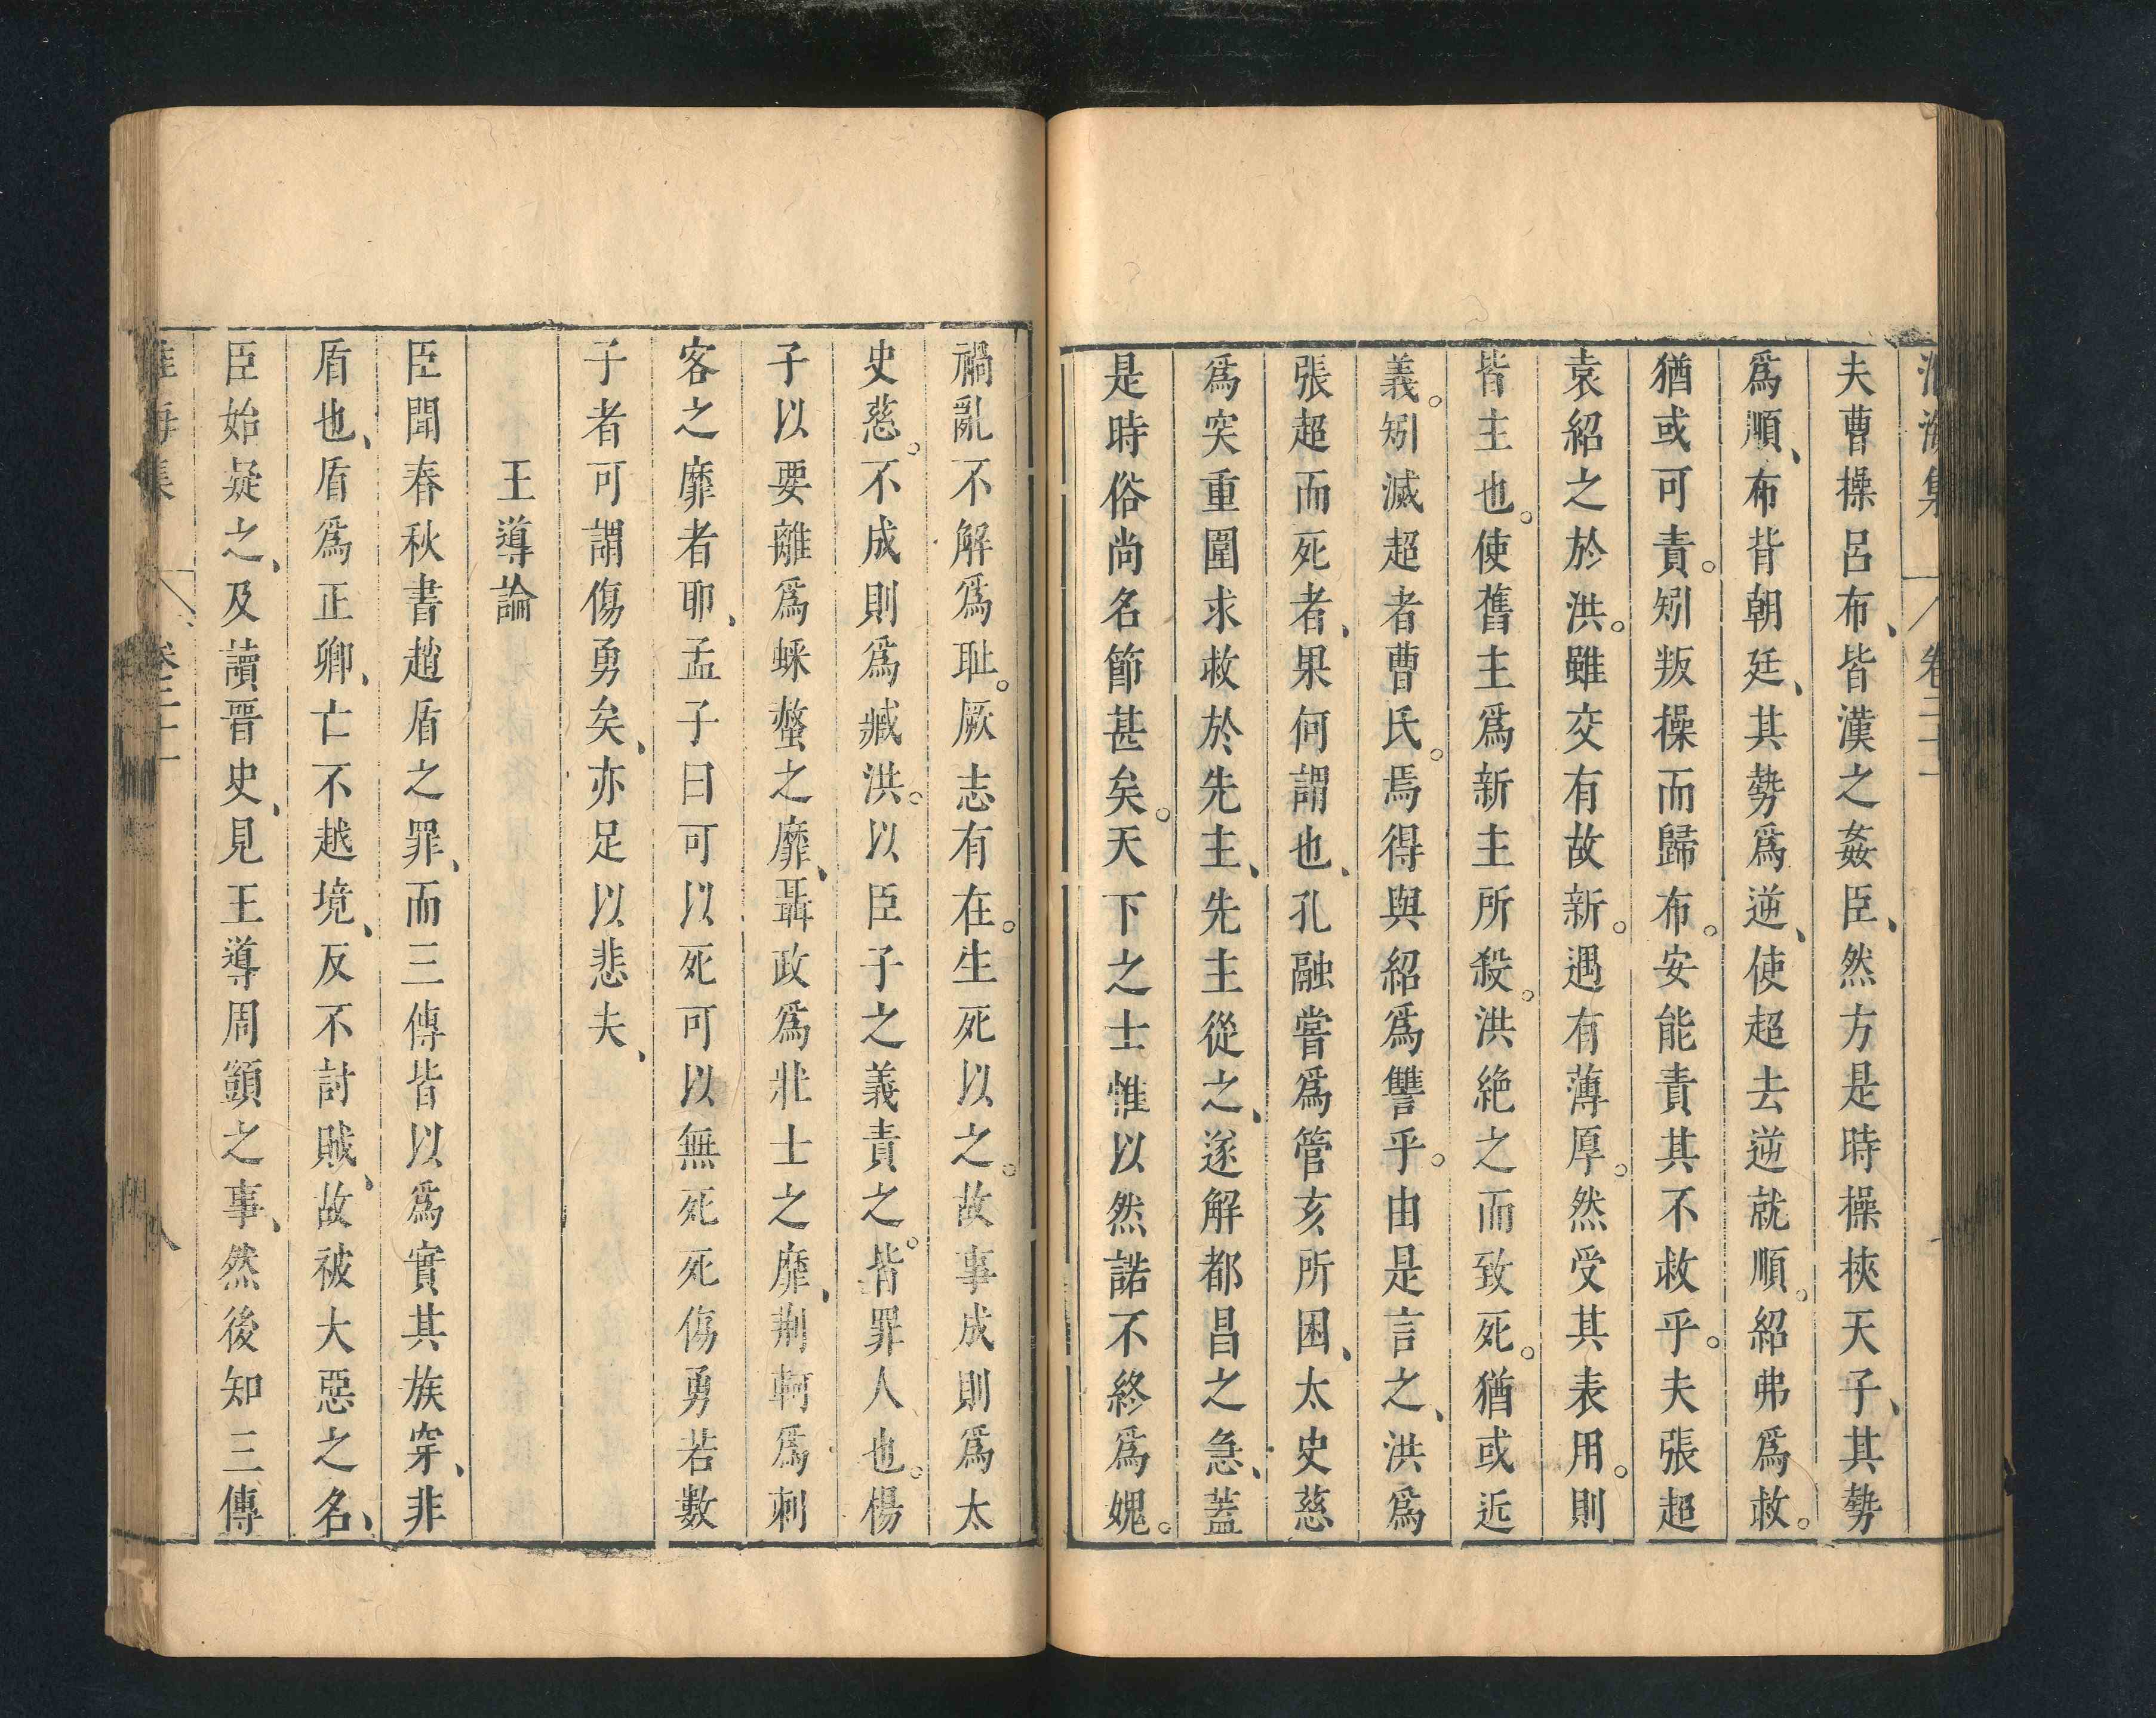 淮海集 卷二十一
夫曹操呂布、皆漢之姦臣、然方是時操挾天子、其勢
爲順、布背朝廷、其勢爲逆、使超去逆就順。紹弗爲救。
猶或可責。矧叛操而歸布。安能責其不救乎。夫張超
袁紹之於洪。雖交有故新。遇有薄厚。然受其表用。則
皆主也。使舊主爲新主所殺。洪絶之而致死。猶或近
義。矧滅超者曹氏。焉得與紹爲讐乎。由是言之、洪爲
張超而死者、果何謂也、孔融嘗爲管亥所困、太史慈
爲突重圍求救於先主、先主從之、遂解都昌之急、蓋
是時俗尚名節甚矣。天下之士惟以然諾不終爲媿。
禍亂不解爲耻。厥志有在。生死以之。故事成則爲太
史慈。不成則爲臧洪。以臣子之義責之。皆罪人也。楊
子以要離爲蛛蝥之靡、聶政爲壯士之靡、荆軻爲刺
客之靡者耶、孟子曰可以死可以無死死傷勇若數
子者可謂傷勇矣、亦足以悲夫、
王導論
臣聞春秋書趙盾之罪、而三傳皆以爲實其族穿、非
盾也、盾爲正卿、亡不越境、反不討賊、故被大惡之名、
臣始疑之、及讀晋史、見王導周顗之事、然後知三傳
淮海集 卷二十一 八